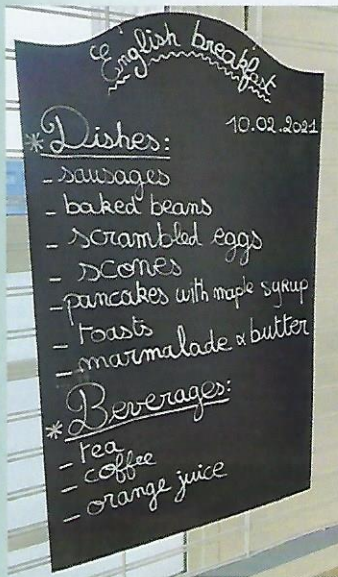 English breakfast
10.02.2021
* Dishes:
- sausages
- baked beans
- scrambled eggs
- scones
- pancakes with maple syrup
- toasts
- marmalade & butter
* Beverages:
- tea
- coffee
- orange juice